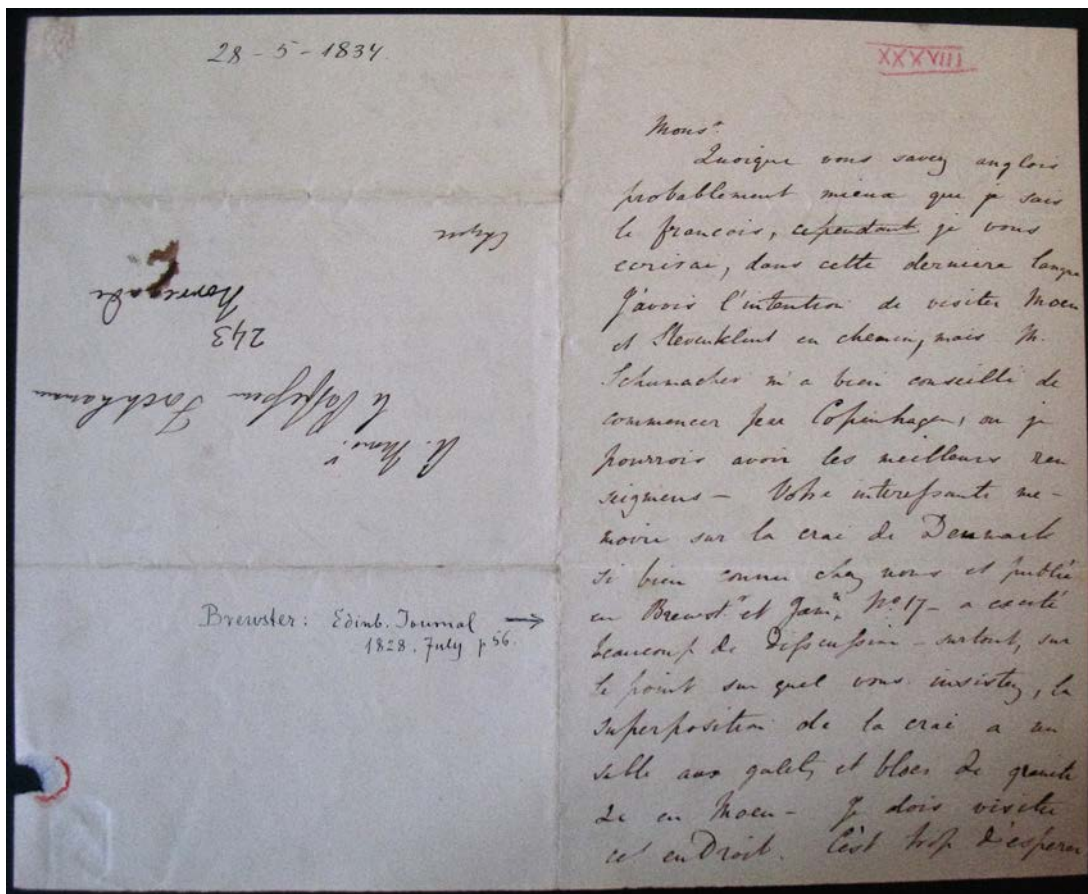 28 - 5 - 1834.
à Mons.r
le Professeur Forchhammer
243
Norregade
Brewster: Edinb. Journal →
1828. July p 56.
XXXVIII
Mons.r
Quoique vous savez anglois
probablement mieux que je sais
le francois, cependant je vous
ecrirai, dans cette derniere langue
J'avois l'intention de visiter Moen
et Stevensklint en chemin, mais M.
Schumacher m'a bien conseillé de
commencer par Copenhagen, ou je
pourrois avoir les meilleurs ren
seigmens – Votre interessante me-
moire sur la craie de Denmark
si bien connu chez nous et publié
en Brewst.r et Jam.n No 17 – a excité
beaucoup de discussion – surtout, sur
le point sur quel vous insistez, la
superposition de la craie a un
sable aux galets et blocs de granite
&c en Moen – Je dois visiter
cet endroit. C'est trop d'esperer